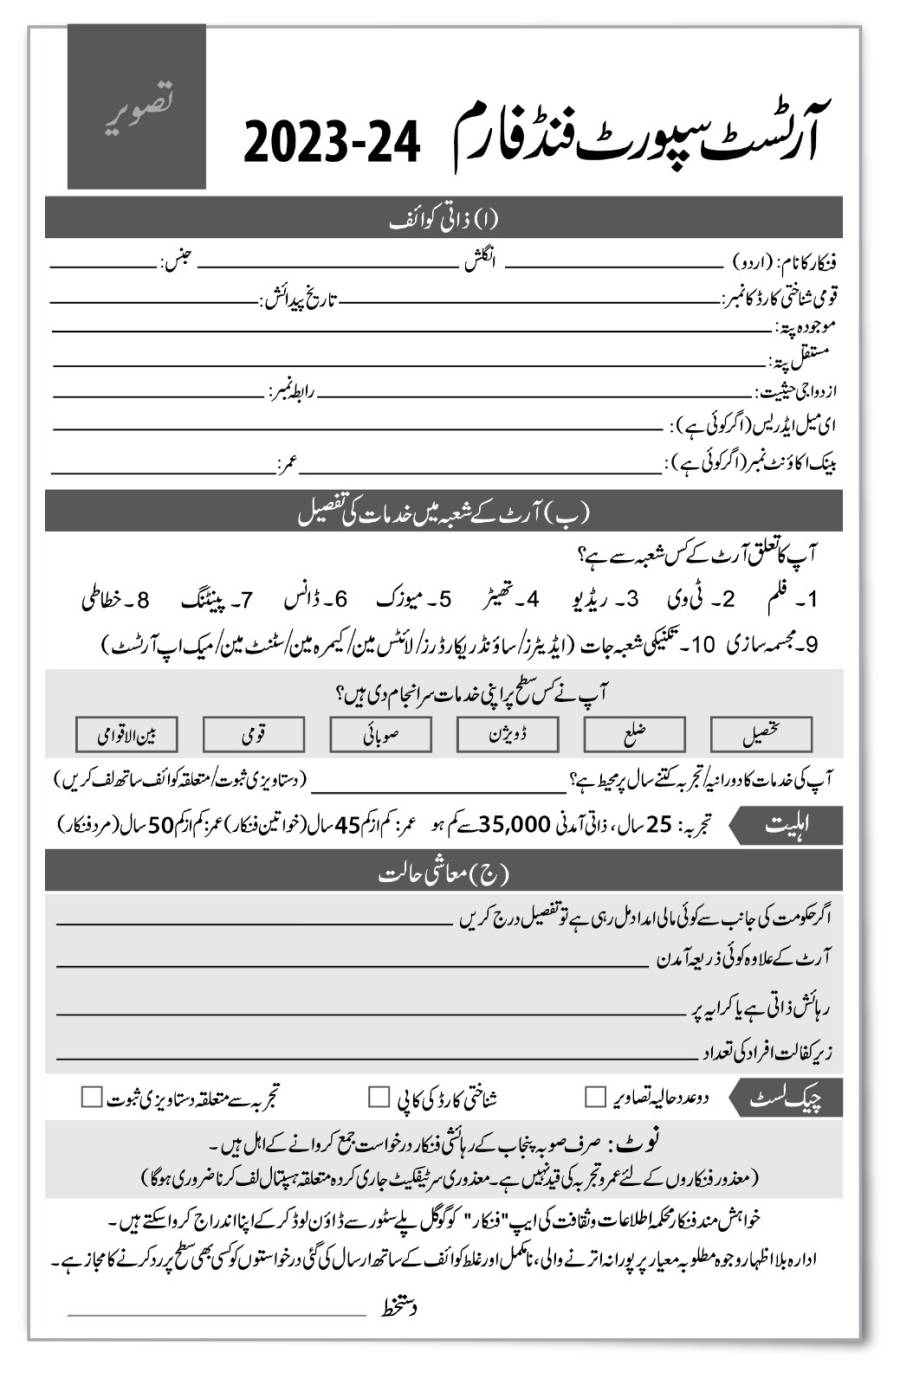 تصویر
آرٹسٹ سپورٹ فنڈ فارم 2023-24
(ا) ذاتی کوائف
فنکار کا نام: (اردو) ____________ انگلش ____________ جنس: ____________
قومی شناختی کارڈ کا نمبر: ____________ تاریخ پیدائش: ____________
موجودہ پتہ: ____________
مستقل پتہ: ____________
ازدواجی حیثیت: ____________ رابطہ نمبر: ____________
ای میل ایڈریس (اگر کوئی ہے): ____________
بینک اکاؤنٹ نمبر (اگر کوئی ہے): ____________ عمر: ____________
(ب) آرٹ کے شعبہ میں خدمات کی تفصیل
آپ کا تعلق آرٹ کے کس شعبہ سے ہے؟
1۔ فلم 2۔ ٹی وی 3۔ ریڈیو 4۔ تھیٹر 5۔ میوزک 6۔ ڈانس 7۔ پینٹنگ 8۔ خطاطی
9۔ مجسمہ سازی 10۔ تکنیکی شعبہ جات (ایڈیٹرز/ساؤنڈ ریکارڈرز/لائٹس مین/کیمرہ مین/سٹنٹ مین/میک اپ آرٹسٹ)
آپ نے کس سطح پر اپنی خدمات سرانجام دی ہیں؟
تحصیل ضلع ڈویژن صوبائی قومی بین الاقوامی
آپ کی خدمات کا دورانیہ/تجربہ کتنے سال پر محیط ہے؟ ____________ (دستاویزی ثبوت/متعلقہ کوائف ساتھ لف کریں)
اہلیت تجربہ: 25 سال، ذاتی آمدنی 35,000 سے کم ہو عمر: کم از کم 45 سال (خواتین فنکار) عمر: کم از کم 50 سال (مرد فنکار)
(ج) معاشی حالت
اگر حکومت کی جانب سے کوئی مالی امداد مل رہی ہے تو تفصیل درج کریں ____________
آرٹ کے علاوہ کوئی ذریعہ آمدن ____________
رہائش ذاتی ہے یا کرایہ پر ____________
زیر کفالت افراد کی تعداد ____________
چیک لسٹ دو عدد حالیہ تصاویر □ شناختی کارڈ کی کاپی □ تجربہ سے متعلقہ دستاویزی ثبوت □
نوٹ: صرف صوبہ پنجاب کے رہائشی فنکار درخواست جمع کروانے کے اہل ہیں۔
(معذور فنکاروں کے لئے عمر و تجربہ کی قید نہیں ہے۔ معذوری سرٹیفکیٹ جاری کردہ متعلقہ ہسپتال لف کرنا ضروری ہوگا)
خواہش مند فنکار محکمہ اطلاعات و ثقافت کی ایپ "فنکار" کو گوگل پلے سٹور سے ڈاؤن لوڈ کر کے اپنا اندراج کروا سکتے ہیں۔
ادارہ بلا اظہار وجوہ مطلوبہ معیار پر پورا نہ اترنے والی، نامکمل اور غلط کوائف کے ساتھ ارسال کی گئی درخواستوں کو کسی بھی سطح پر رد کرنے کا مجاز ہے۔
دستخط ____________